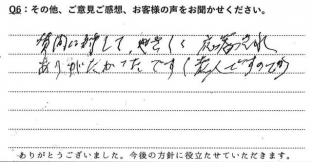 Q6：その他、ご意見ご感想、お客様の声をお聞かせください。
質問に対して、やさしく応答され
ありがたかったです（老人ですので）
ありがとうございました。今後の方針に役立たせていただきます。